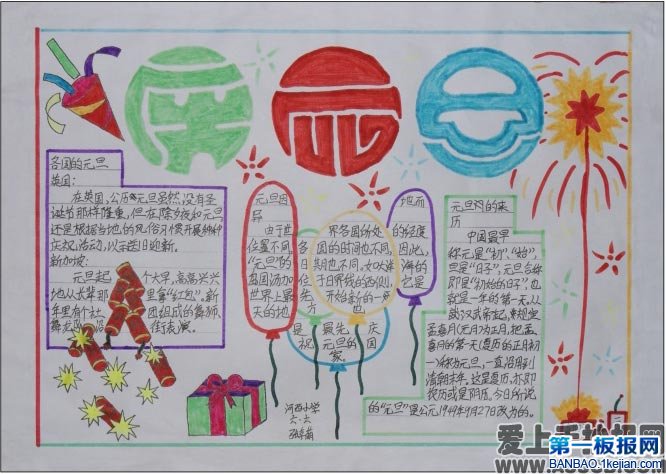 庆元旦
各国的元旦
英国：
在英国，公历元旦虽然没有圣
诞节那样隆重，但在除夕夜和元旦
还是根据当地的风俗习惯开展种种
庆祝活动，以示送旧迎新。
新加坡：
元旦起个大早，高高兴兴
地从长辈那里拿"红包"。新
年里有个社团组成的舞狮
舞龙队沿街表演。
元旦因地而
异
由于世界各国所处的经度
位置不同，各国的时间也不同，因此，
"元旦"的日期也不同，如大洋海的
岛国汤加位于日界线的西侧，它是
世界上最先开始新的一
天的地方，也
是最先庆
祝元旦的国
家
元旦的来
历
中国最早
称元是"初"、"始"，
旦是"日子"，元旦合称
即是"初始的日子"，也
就是一年的第一天。从
汉武帝起，规定
孟喜月(元月)为正月，把孟
喜月的第一天(夏历的正月初
一)称为元旦，一直沿用到
清朝末年。这是夏历，亦即
农历或阴历。今日所说
的"元旦"是公元1949年9月27日改为的。
河西小学
六.六
爱上手抄报网
第一板报网
BANBAO.1kejian.com